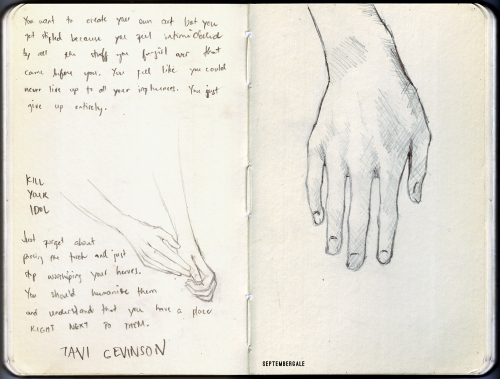 You want to create your own art but you
get stifled because you feel intimidated
by all the stuff you fangirl over that
came before you. You feel like you could
never live up to all your influences. You just
give up entirely.
KILL
YOUR
IDOL
Just forget about
passing the torch and just
stop worshiping your heroes.
You should humanize them
and understand that you have a place
RIGHT NEXT TO THEM.
TAVI GEVINSON
SEPTEMBERGALE